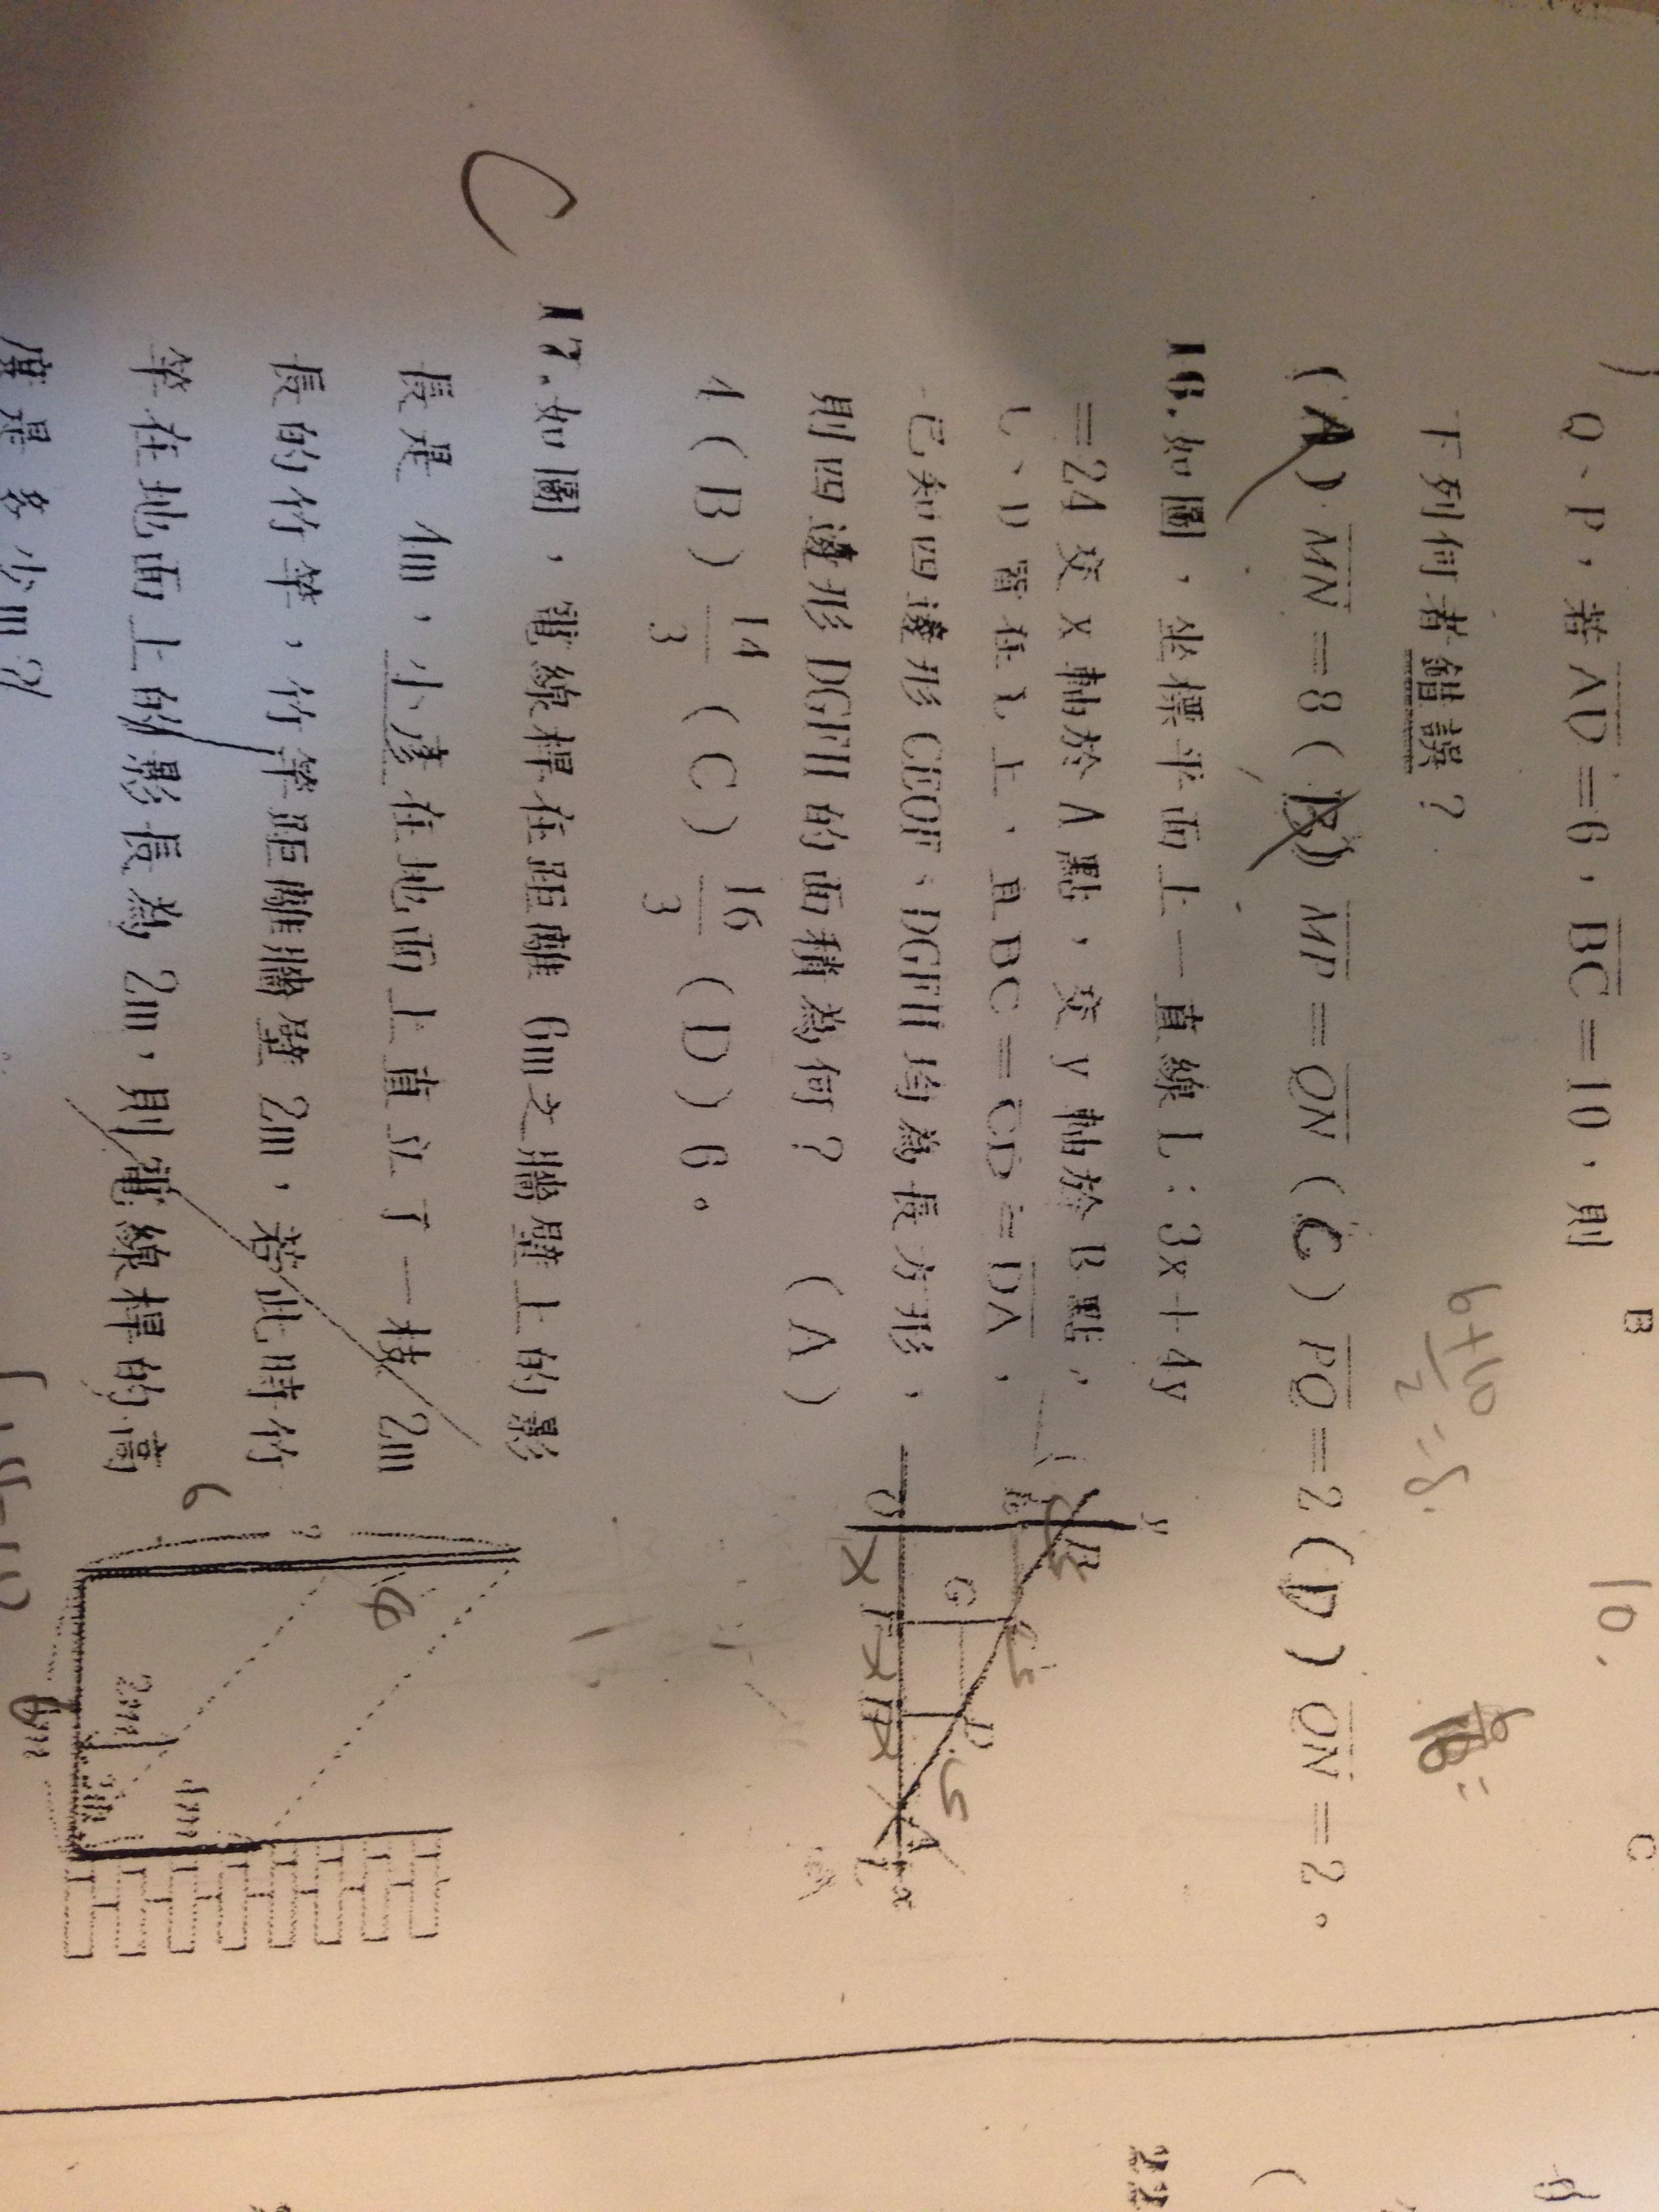 Q、P,若AD=6,BC=10,則
下列何者錯誤?
(A) MN=8 (B) MP=QN (C) PQ=2 (D) QN=2。
B
C
6+10
2
=8
10
16.如圖,坐標平面上一直線 L:3x+4y
=24 交 x 軸於 A 點,交 y 軸於 B 點,
C、D 皆在 L 上,且 BC=CD=DA,
已知四邊形 CEOF、DGFH 均為長方形,
則四邊形 DGFH 的面積為何? (A)
4 (B) 14/3 (C) 16/3 (D) 6。
y
B
E
C
G
D
O
F
H
A
x
L
C
17.如圖,電線桿在距離 6m之牆壁上的影
長是 4m,小彥在地面上直立了一枝 2m
長的竹竿,竹竿距離牆壁 2m,若此時竹
竿在地面上的影長為 2m,則電線桿的高
度是多少m?
6
?
6
2m
4m
2m
6m
22